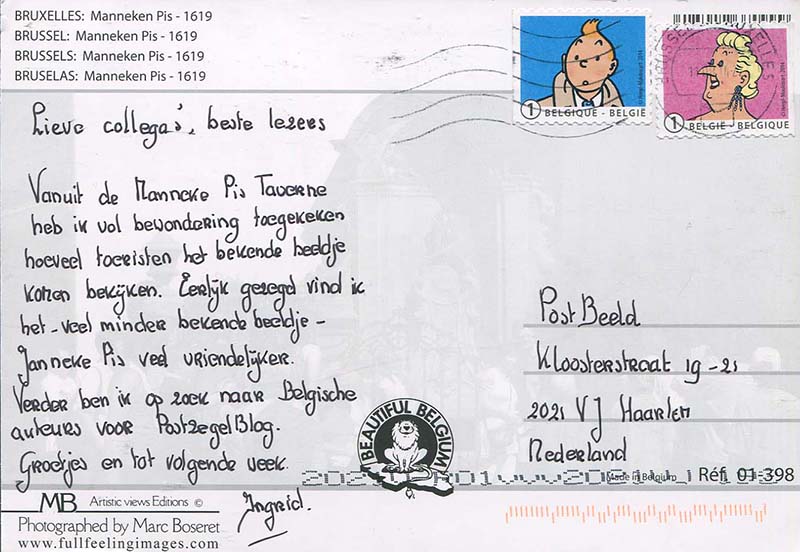 BRUXELLES: Manneken Pis - 1619
BRUSSEL: Manneken Pis - 1619
BRUSSELS: Manneken Pis - 1619
BRUSELAS: Manneken Pis - 1619
1 BELGIQUE - BELGIE
1 BELGIË - BELGIQUE
Lieve collega's, beste lezers
Vanuit de Manneke Pis Taverne
heb ik vol bewondering toegekeken
hoeveel toeristen het bekende beeldje
komen bekijken. Eerlijk gezegd vind ik
het - veel minder bekende beeldje -
Janneke Pis veel vriendelijker.
Verder ben ik op zoek naar Belgische
auteurs voor PostzegelBlog.
Groetjes en tot volgende week.
Ingrid.
PostBeeld
Kloosterstraat 19-21
2021 VJ Haarlem
Nederland
BEAUTIFUL BELGIUM
Made in Belgium
Réf. 01-398
MB Artistic views Editions ©
Photographed by Marc Boseret
www.fullfeelingimages.com